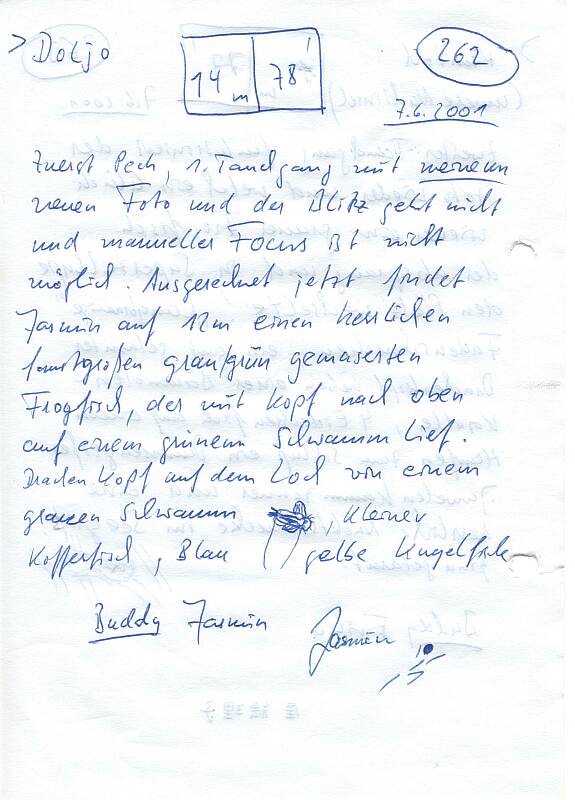 > Doljo
14 m
78'
262
7.6.2001
Zuerst Pech, 1. Tandgang mit meinem
neuen Foto und der Blitz geht nicht
und manueller Focus ist nicht
möglich. Ausgerechnet jetzt findet
Jasmin auf 12m einen herrlichen
faustgroßen grau/grün gemaserten
Frogfisch, der mit Kopf nach oben
auf einem grünem Schwamm lief.
Drachen Kopf auf dem Loch von einem
Schwamm , Kleiner
Kofferfisch, Blau gelbe Kugelfische
Buddy Jasmin
Jasmin